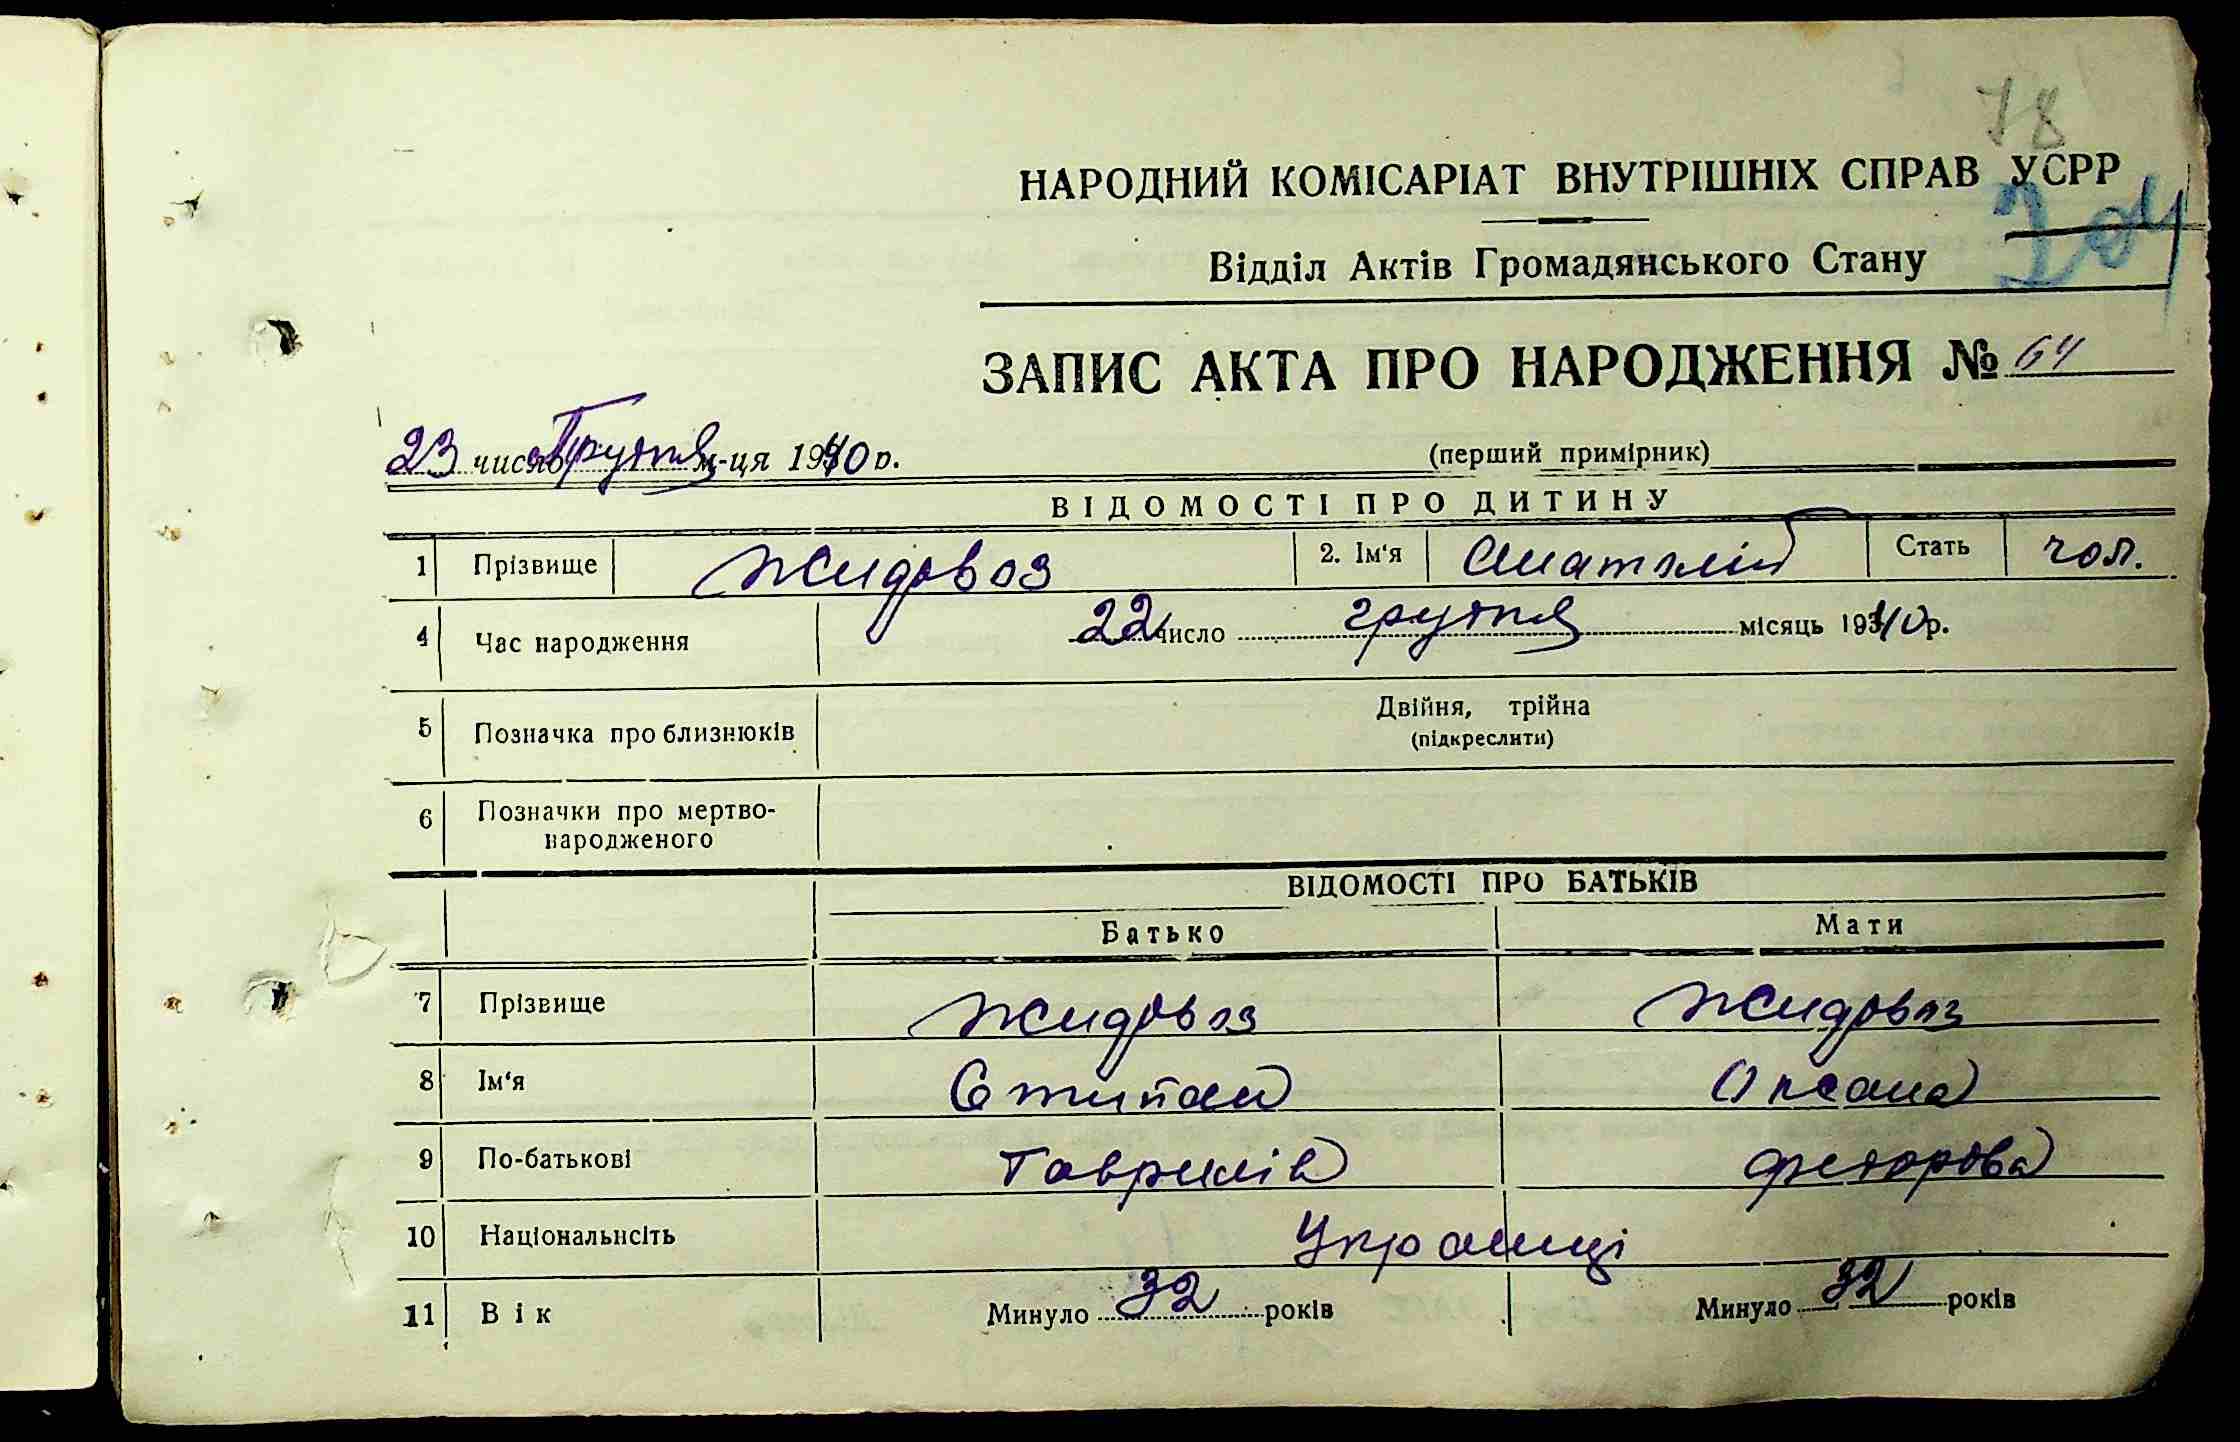 78
НАРОДНИЙ КОМІСАРІАТ ВНУТРІШНІХ СПРАВ УСРР
204
Відділ Актів Громадянського Стану
ЗАПИС АКТА ПРО НАРОДЖЕННЯ № 64
23 число Грудня м-ця 1940 р.
(перший примірник)
ВІДОМОСТІ ПРО ДИТИНУ
1 Прізвище Жидовоз 2. Ім'я Анатолій Стать чол.
4 Час народження 22 число грудня місяць 1940 р.
5 Позначка про близнюків Двійня, трійна
(підкреслити)
6 Позначки про мертво-
народженого
ВІДОМОСТІ ПРО БАТЬКІВ
Батько Мати
7 Прізвище Жидовоз Жидовоз
8 Ім'я Стипан Оксана
9 По-батькові Гаврилів Федорова
10 Національнсіть Українці
11 Вік Минуло 32 років Минуло 32 років